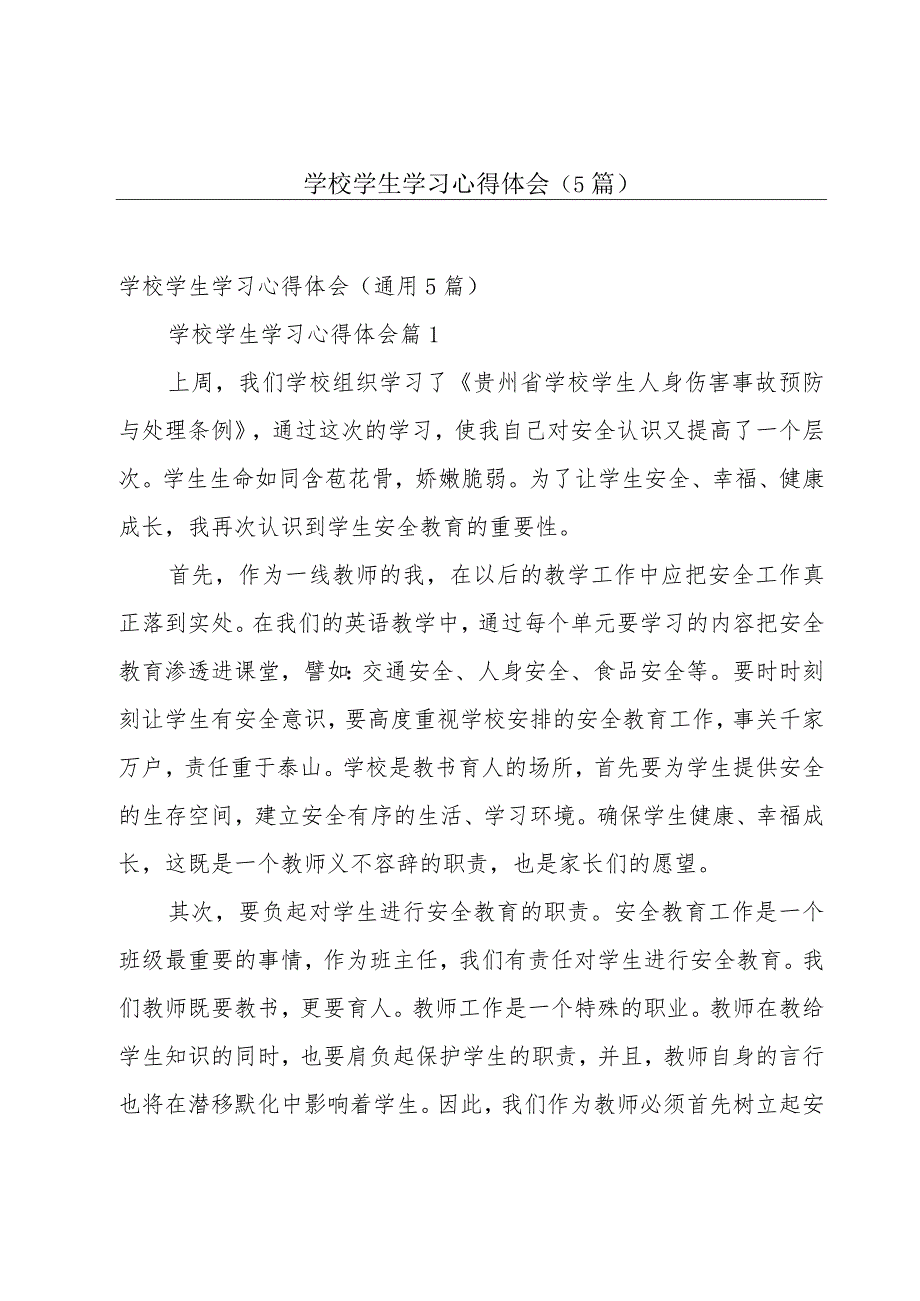 学校学生学习心得体会（5篇）
学校学生学习心得体会（通用5篇）
学校学生学习心得体会篇1
上周，我们学校组织学习了《贵州省学校学生人身伤害事故预防
与处理条例》，通过这次的学习，使我自己对安全认识又提高了一个层
次。学生生命如同含苞花骨，娇嫩脆弱。为了让学生安全、幸福、健康
成长，我再次认识到学生安全教育的重要性。
首先，作为一线教师的我，在以后的教学工作中应把安全工作真
正落到实处。在我们的英语教学中，通过每个单元要学习的内容把安全
教育渗透进课堂，譬如：交通安全、人身安全、食品安全等。要时时刻
刻让学生有安全意识，要高度重视学校安排的安全教育工作，事关千家
万户，责任重于泰山。学校是教书育人的场所，首先要为学生提供安全
的生存空间，建立安全有序的生活、学习环境。确保学生健康、幸福成
长，这既是一个教师义不容辞的职责，也是家长们的愿望。
其次，要负起对学生进行安全教育的职责。安全教育工作是一个
班级最重要的事情，作为班主任，我们有责任对学生进行安全教育。我
们教师既要教书，更要育人。教师工作是一个特殊的职业。教师在教给
学生知识的同时，也要肩负起保护学生的职责，并且，教师自身的言行
也将在潜移默化中影响着学生。因此，我们作为教师必须首先树立起安